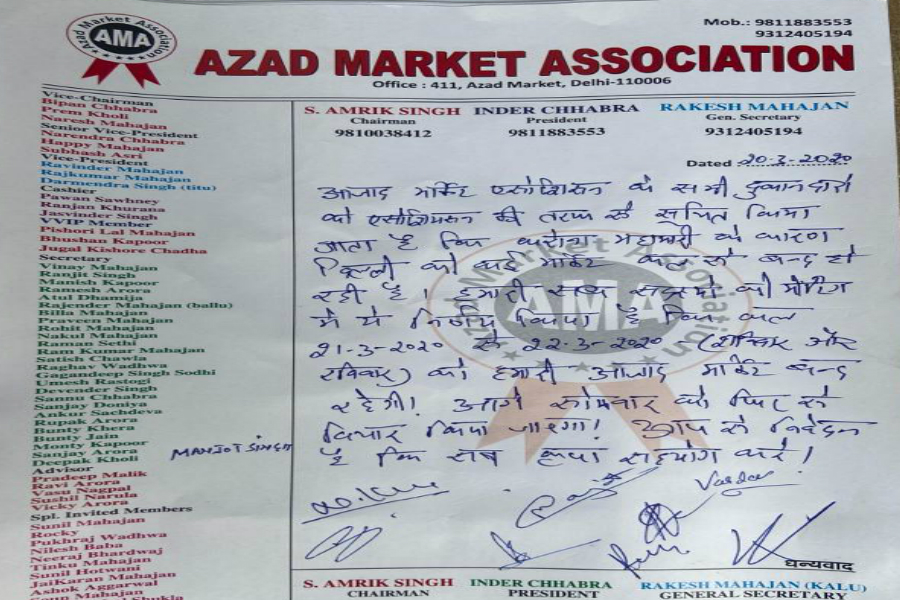 Mob.: 9811883553
9312405194
Azad Market Association
AMA
AZAD MARKET ASSOCIATION
Office : 411, Azad Market, Delhi-110006
Vice-Chairman
Bipan Chhabra
Prem Kholi
Naresh Mahajan
Senior Vice-President
Narendra Chhabra
Happy Mahajan
Subhash Asri
Vice-President
Ravinder Mahajan
Rajkumar Mahajan
Darmendra Singh (titu)
Cashier
Pawan Sawhney
Ranjan Khurana
Jasvinder Singh
VVIP Member
Pishori Lal Mahajan
Bhushan Kapoor
Jugal Kishore Chadha
Secretary
Vinay Mahajan
Ranjit Singh
Manish Kapoor
Ramesh Arora
Atul Dhamija
Rajender Mahajan (ballu)
Billa Mahajan
Praveen Mahajan
Rohit Mahajan
Nakul Mahajan
Raman Sethi
Ram Kumar Mahajan
Satish Chawla
Raghav Wadhwa
Gagandeep Singh Sodhi
Umesh Rastogi
Devender Singh
Sannu Chhabra
Sanjay Doniya
Ankur Sachdeva
Rupak Arora
Bunty Khera
Bunty Jain
Monty Kapoor
Sanjay Arora
Deepak Kholi
MANJOT SINGH
Advisor
Pradeep Malik
Ravi Arora
Vasu Nagpal
Sushil Narula
Vicky Arora
Spl. Invited Members
Sunil Mahajan
Rocky
Pukhraj Wadhwa
Nilesh Baba
Neeraj Bhardwaj
Tinku Mahajan
Sunil Hotwani
JaiKaran Mahajan
Ashok Aggarwal
Mahajan
S. AMRIK SINGH INDER CHHABRA RAKESH MAHAJAN
Chairman President Gen. Secretary
9810038412 9811883553 9312405194
Dated 20-3-2020
आजाद मार्किट एसोशिएसन के सभी दुकानदारो
को एसोशिएसन की तरफ से सूचित किया
जाता है कि करोना महामारी के कारण
दिल्ली की कई मार्किट कल से बन्द हो
रही है। हमारी सब सदस्यो की मीटिंग
मे ये निर्णय किया है कि कल
21-3-2020 से 22-3-2020 - (शनिवार और
रविवार) को हमारी आजाद मार्किट बन्द
रहेगी! आगे सोमवार को फिर से
विचार किया जाएगा! आप से निवेदन
है कि सब कृपा सहयोग करे।
धन्यवाद
S. AMRIK SINGH INDER CHHABRA RAKESH MAHAJAN (KALU)
CHAIRMAN PRESIDENT GENERAL SECRETARY